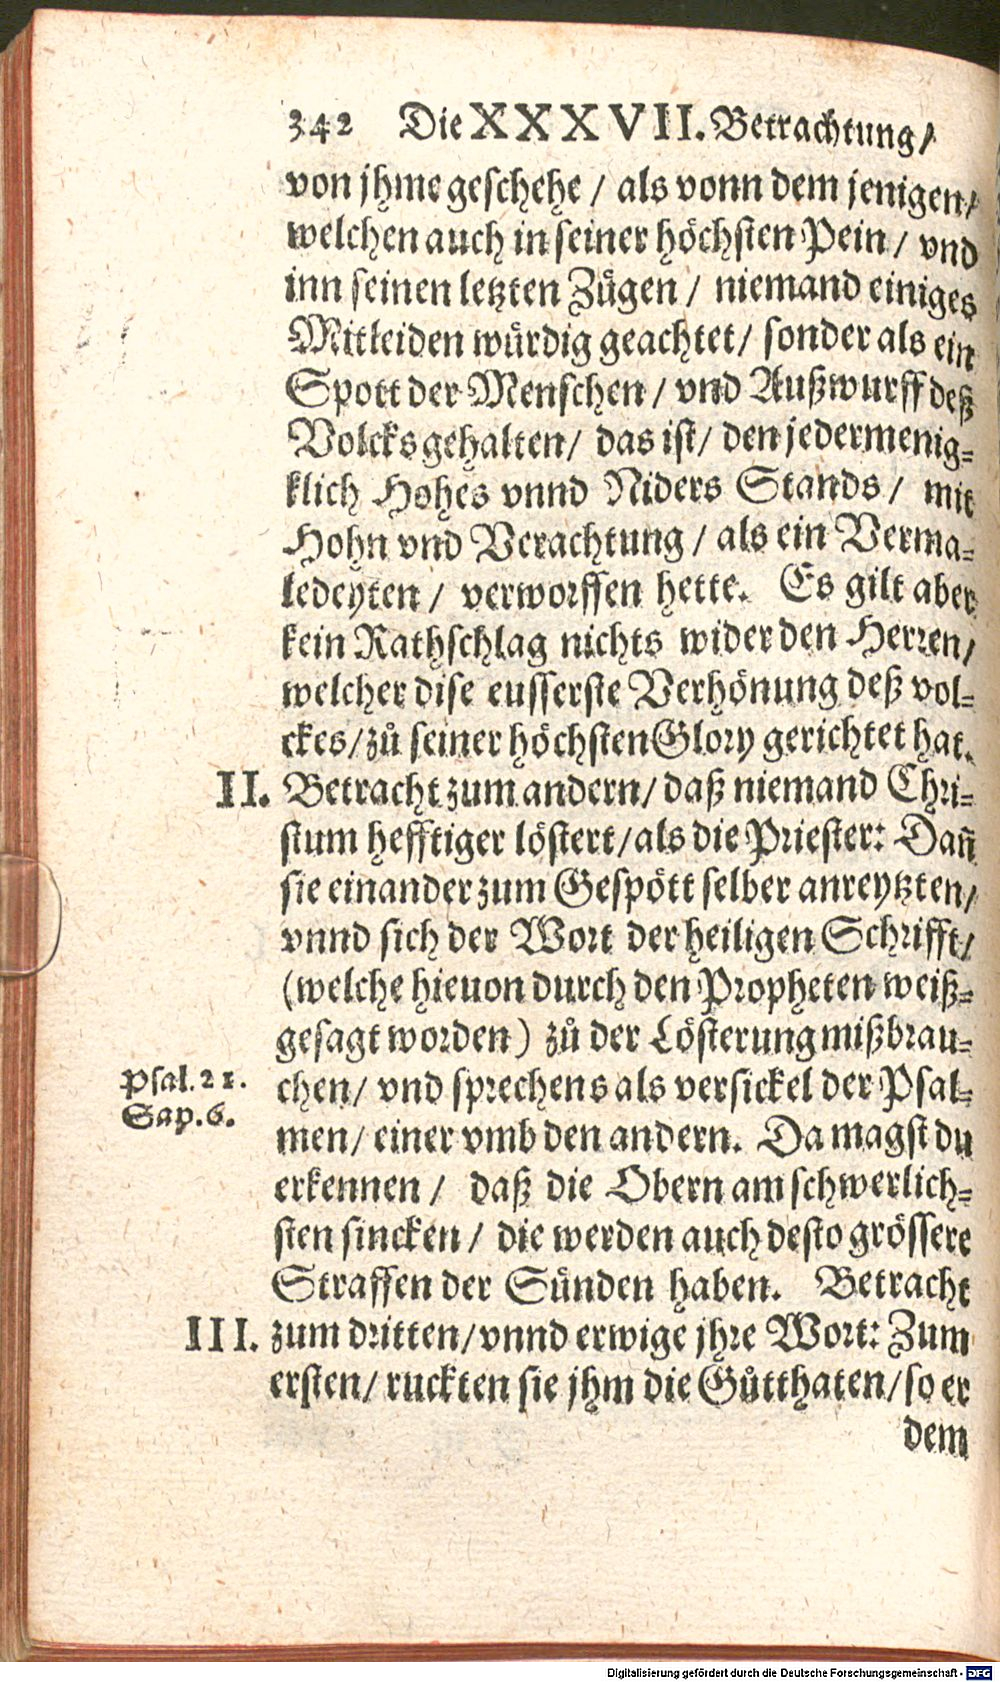 342 Die XXXVII. Betrachtung/
von jhme geschehe / als vonn dem jenigen/
welchen auch in seiner höchsten Pein / vnd
inn seinen letzten Zügen / niemand einiges
Mitleiden würdig geachtet/ sonder als ein
Spott der Menschen / vnd Außwurff deß
Volcks gehalten/ das ist/ den jedermenig-
klich Hohes vnnd Niders Stands / mit
Hohn vnd Verachtung / als ein Verma-
ledeyten / verworffen hette. Es gilt aber
kein Rathschlag nichts wider den Herren/
welcher dise eusserste Verhönung deß vol-
ckes/ zů seiner höchsten Glory gerichtet hat.
II. Betracht zum andern/ daß niemand Chri-
stum hefftiger löstert/ als die Priester: Dañ
sie einander zum Gespött selber anreytzten/
vnnd sich der Wort der heiligen Schrifft/
(welche hieuon durch den Propheten weiß-
gesagt worden) zů der Lösterung mißbrau-
Psal. 21. chen/ vnd sprechens als versickel der Psal-
Sap. 6. men/ einer vmb den andern. Da magst du
erkennen / daß die Obern am schwerlich-
sten sincken / die werden auch desto grössere
Straffen der Sünden haben. Betracht
III. zum dritten/ vnnd erwige jhre Wort: Zum
ersten/ ruckten sie jhm die Gůtthaten/ so er
dem
Digitalisierung gefördert durch die Deutsche Forschungsgemeinschaft - DFG